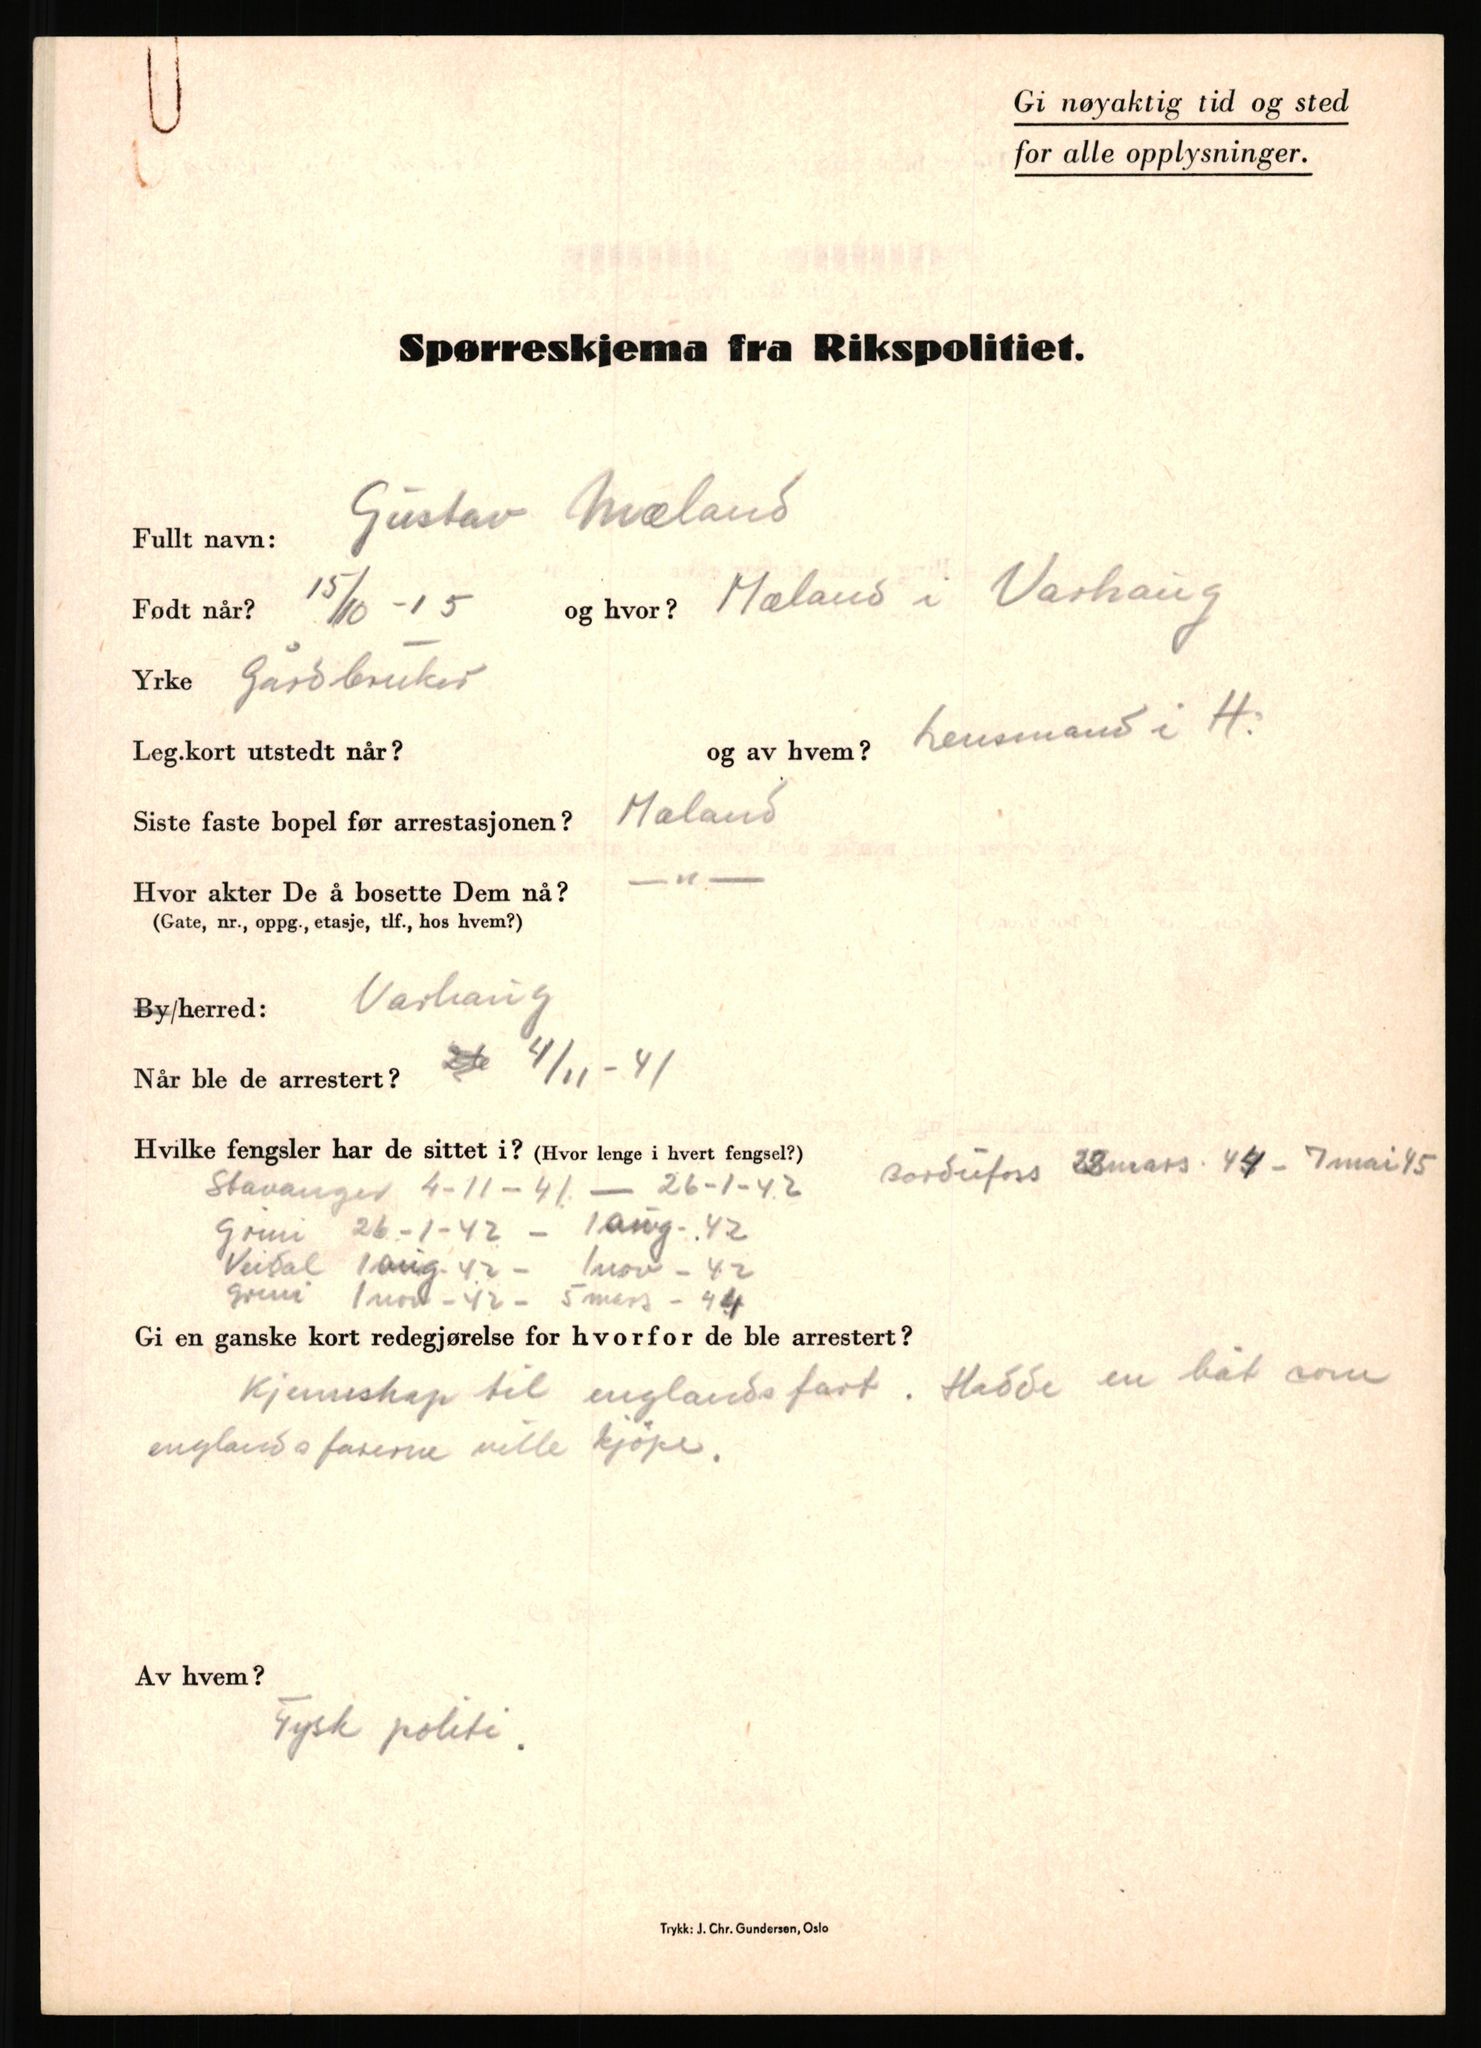 Gi nøyaktig tid og sted
for alle opplysninger.
Spørreskjema fra Rikspolitiet.
Fullt navn: Gustav Mæland
Født når? 15/10 - 15 og hvor? Mæland i Varhaug
Yrke Gårdbruker
Leg.kort utstedt når? og av hvem? Lensmand i H.
Siste faste bopel før arrestasjonen? Mæland
Hvor akter De å bosette Dem nå? — " —
(Gate, nr., oppg., etasje, tlf., hos hvem?)
By/herred: Varhaug
Når ble de arrestert? 4/11 - 41
Hvilke fengsler har de sittet i? (Hvor lenge i hvert fengsel?)
Stavanger 4-11-41. — 26-1-42 sardufoss 23 mars. 44 - 7 mai 45
Grini 26-1-42 - 1 aug-.42
Veidal 1 aug. 42 - 1 nov - 42
Grini 1 nov - 42 - 5 mars - 44
Gi en ganske kort redegjørelse for hvorfor de ble arrestert?
Kjennskap til englandsfart. Hadde en båt som
englandsfarerne ville kjöpe.
Av hvem?
Tysk politi.
Trykk: J. Chr. Gundersen, Oslo